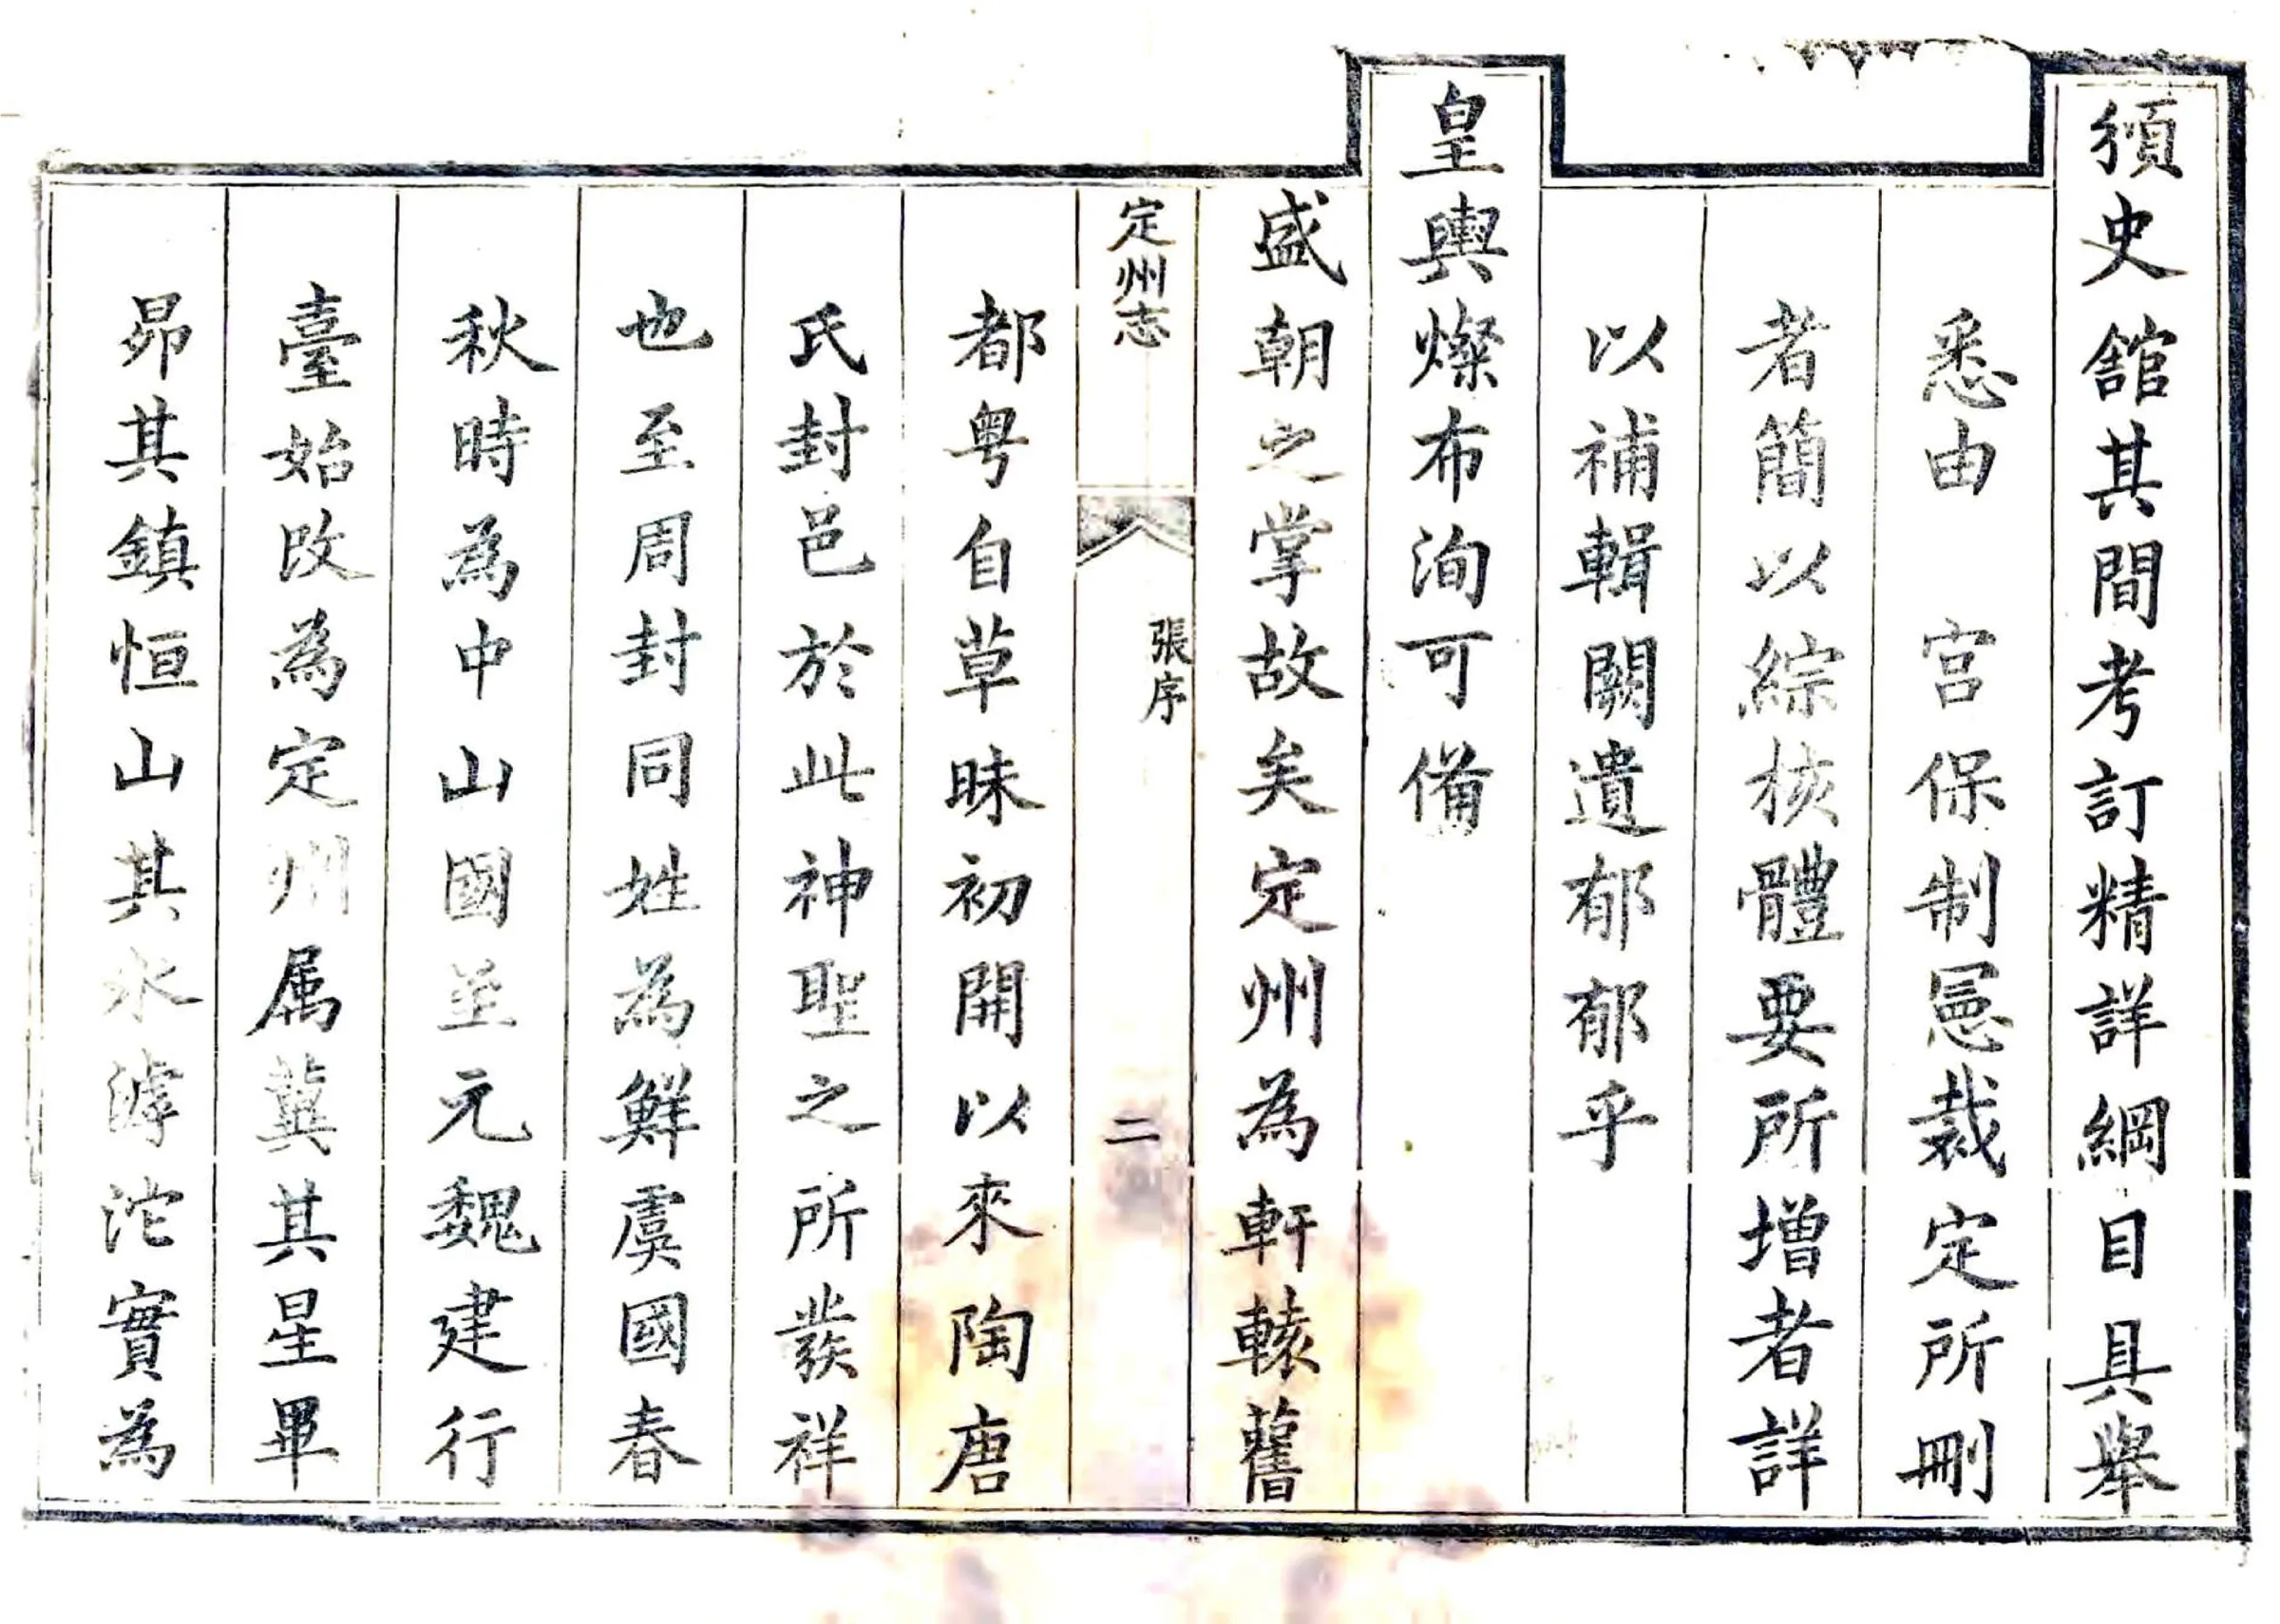 須史館其間考訂精詳綱目具舉
悉由　宮保制憲裁定所刪
者簡以綜核體要所增者詳
以補輯闕遺郁郁乎
皇輿燦布洵可備
盛朝之掌故矣定州為軒轅舊
定州志
張序
二
都粤自草昧初開以來陶唐
氏封邑於此神聖之所發祥
也至周封同姓為鮮虞國春
秋時為中山國至元魏建行
臺始改為定州属冀其星畢
昴其鎮恒山其水滹沱實為